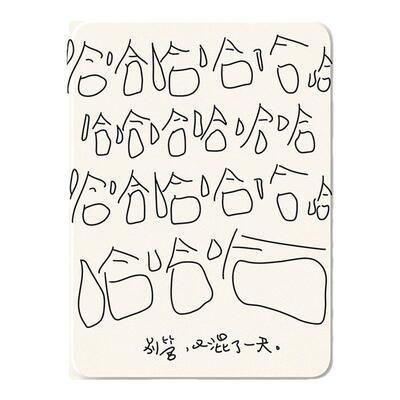 哈哈哈哈哈哈
哈哈哈哈哈哈
哈哈哈哈哈哈
哈哈哈
别管，又混了一天。